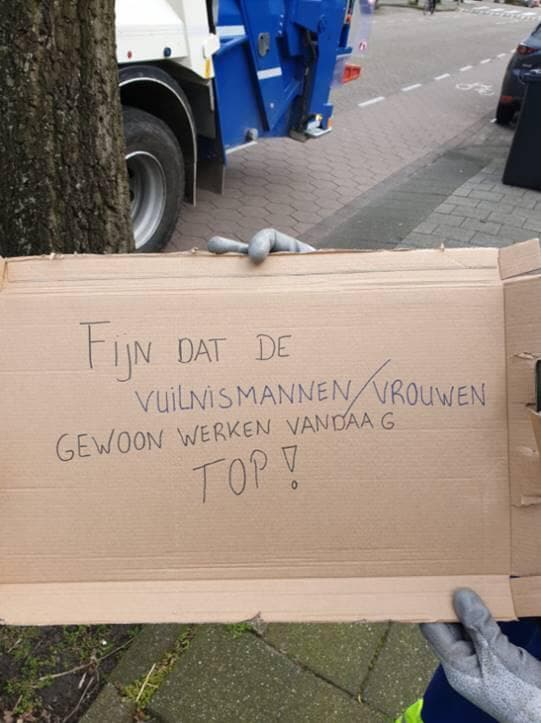 Fijn dat de
vuilnismannen/vrouwen
gewoon werken vandaag
TOP!